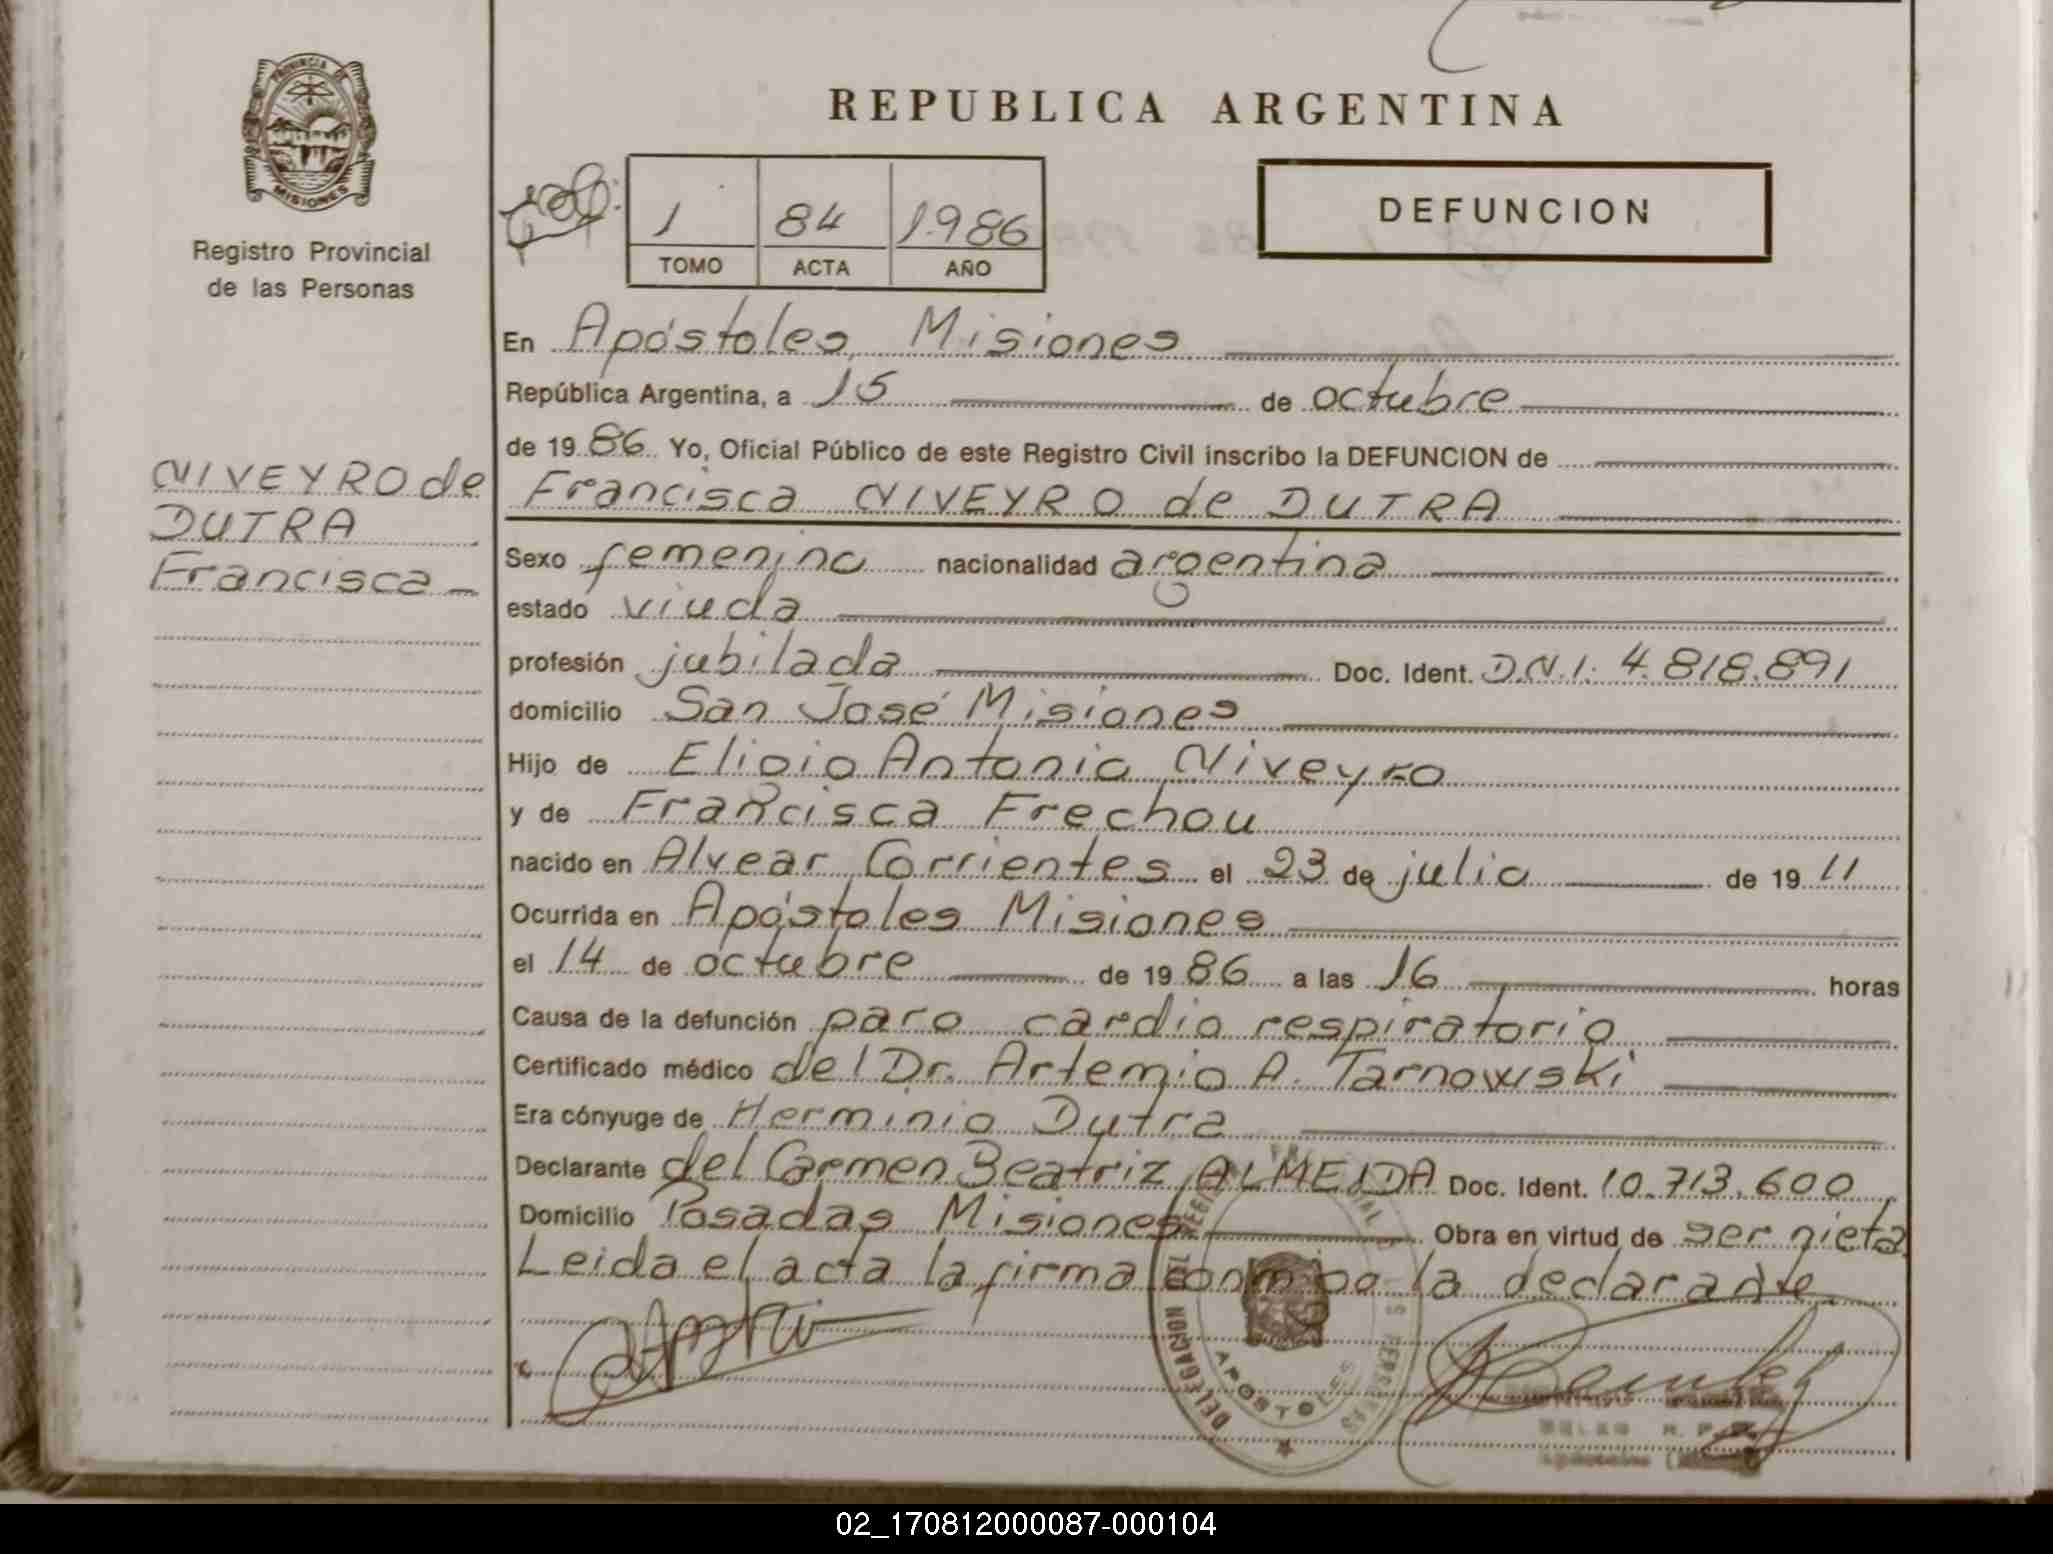 PROVINCIA DE
MISIONES
Registro Provincial
de las Personas
NIVEYRO de
DUTRA
Francisca
REPUBLICA ARGENTINA
1 84 1986
TOMO ACTA AÑO
DEFUNCION
En Apóstoles Misiones
República Argentina, a 15 de octubre
de 19 86 Yo, Oficial Público de este Registro Civil inscribo la DEFUNCION de
Francisca NIVEYRO de DUTRA
Sexo femenino nacionalidad argentina
estado viuda
profesión jubilada Doc. Ident. D.N.I. 4.818.891
domicilio San José Misiones
Hijo de Eligio Antonio Niveyro
y de Francisca Frechou
nacido en Alvear Corrientes el 23 de julio de 19 11
Ocurrida en Apóstoles Misiones
el 14 de octubre de 19 86 a las 16 horas
Causa de la defunción paro cardio respiratorio
Certificado médico del Dr. Artemio A. Tarnowski
Era cónyuge de Herminio Dutra
Declarante del Carmen Beatriz ALMEIDA Doc. Ident. 10.713.600
Domicilio Posadas Misiones Obra en virtud de ser nieta
Leida el acta la firma conmigo la declarante
DELEGACION DEL
APOSTOLES
02_170812000087-000104